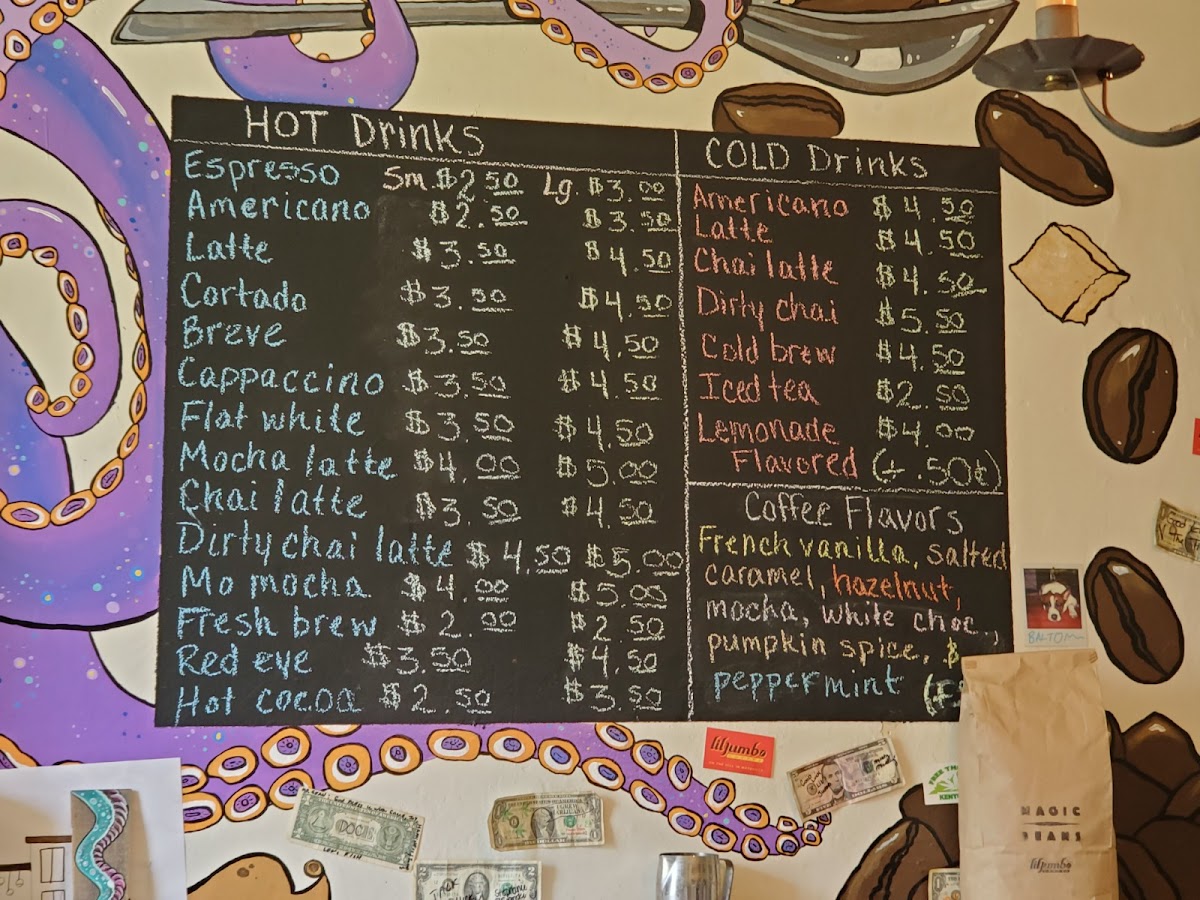 HOT Drinks
Espresso Sm. $2.50 Lg. $3.00
Americano $2.50 $3.50
Latte $3.50 $4.50
Cortado $3.50 $4.50
Breve $3.50 $4.50
Cappaccino $3.50 $4.50
Flat white $3.50 $4.50
Mocha latte $4.00 $5.00
Chai latte $3.50 $4.50
Dirty chai latte $4.50 $5.00
Mo mocha $4.00 $5.00
Fresh brew $2.00 $2.50
Red eye $3.50 $4.50
Hot cocoa $2.50 $3.50
COLD Drinks
Americano $4.50
Latte $4.50
Chai latte $4.50
Dirty chai $5.50
Cold brew $4.50
Iced tea $2.50
Lemonade $4.00
Flavored (+ .50¢)
Coffee Flavors
French vanilla, salted
caramel, hazelnut,
mocha, white choc.,
pumpkin spice, &
peppermint
BALTO
liljumbo
DOCK
MAGIC
BEANS
liljumbo